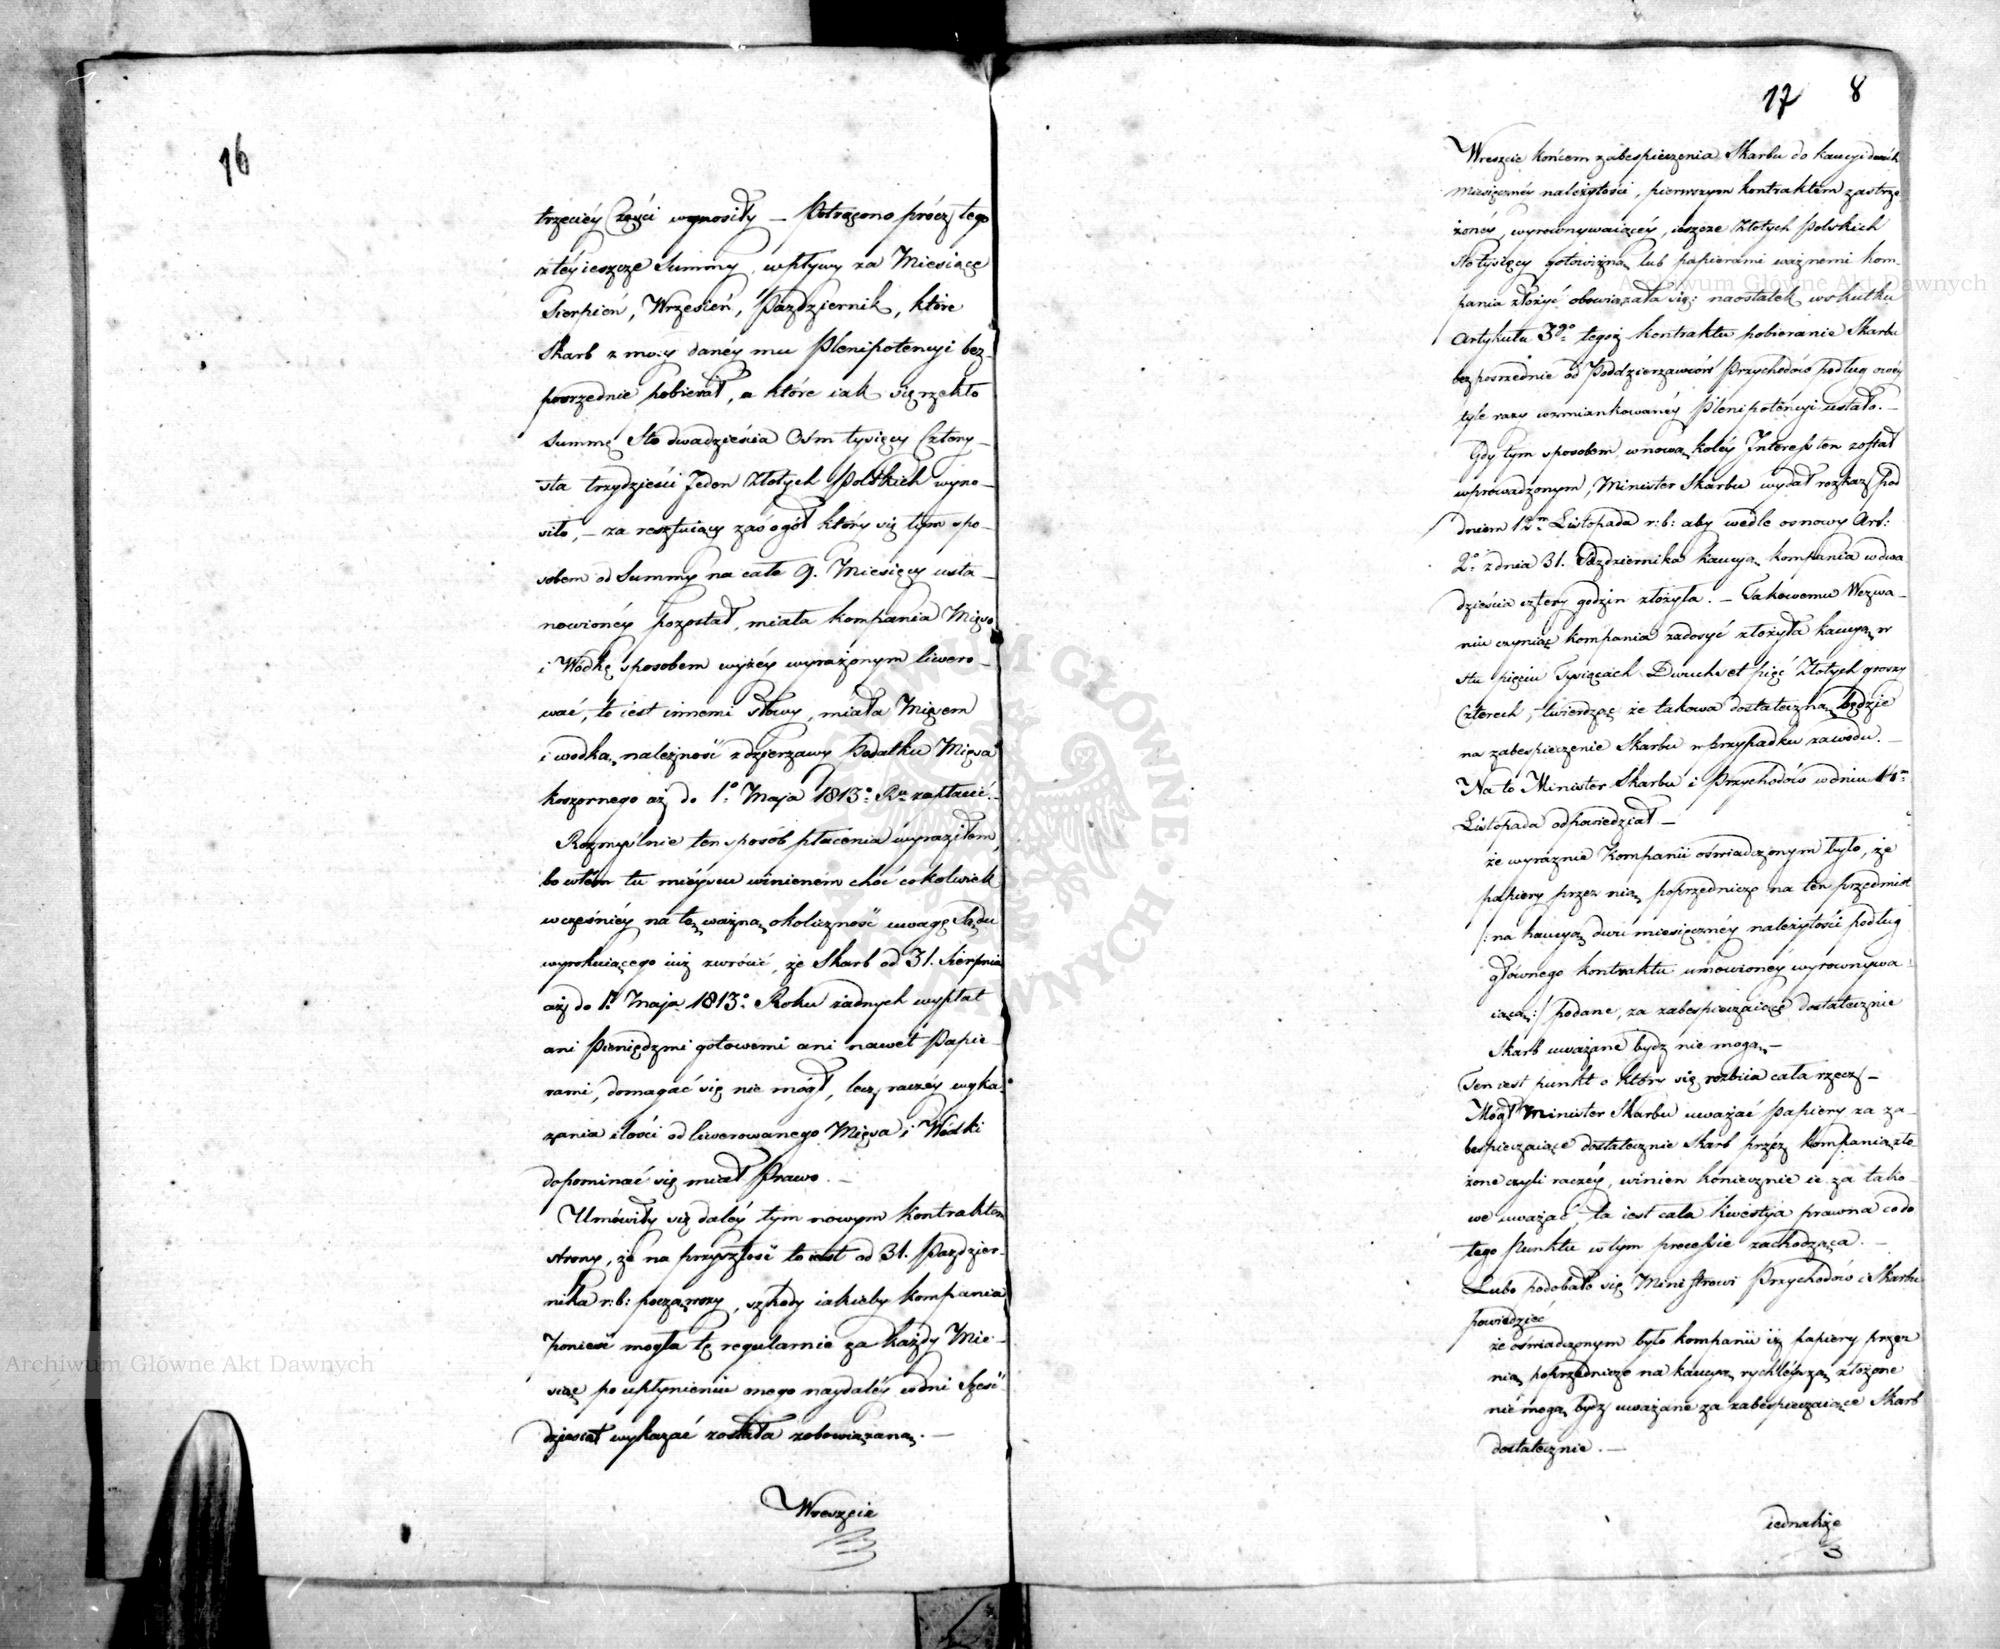 16
trzeciéy Części wynosiły — Potrącono prócz tego
z téy ieszcze Summy, wpływy za Miesiące
Sierpień, Wrzesień, Pazdziernik, które
Skarb z mocy danéy mu Plenipotencyi bez-
pośrzednie pobierał, a które iak się rzekło
Summę Sto dwadzieścia Ośm tysięcy Cztery-
sta trzydzieści Jeden Złotych Polskich wyno-
siło, — za resztuiący zaś ogół który się tym spo-
sobem od Summy na całe 9. Miesięcy usta-
nowionéy pozostał, miała kompania Mięso
i Wódkę sposobem wyżéy wyrażonym liwero-
wać, to iest innemi słowy, miała Mięsem
i wodką, należność z dzierzawy Podatku Mięsa
koszernego aż do 1o. Maja 1813o. Ru. zapłacić.—
Rozmyślnie ten sposób płacenia wyraziłem,
bo w tém tu miéyscu winienem choć cokolwiek
wcześniéy na tę ważną okoliczność uwagę Sądu
wyrokuiącego iuż zwrócić, że Skarb od 31. Sierpnia
aż do 1o. Maja 1813o. Roku żadnych wypłat
ani Pieniędzmi gotowemi ani nawet Papie-
rami, domagać się nie mógł, lecz raczéy wyka-
zania ilości odliwerowanego Mięsa i Wódki
dopominać się miał Prawo. —
Umówiły się daléy tym nowym kontraktem
strony, że na przyszłość to iest od 31. Pazdzier-
nika r: b: począwszy, szkody iakieby kompania
ponieść mogła tę regularnie za każdy Mie-
siąc po upłynieniu onego naydaléy w dni Sześć
dziesiąt wykazać została zobowiązaną. —
Wreszcie
17 8
Wreszcie końcem zabespieczenia Skarbu do kaucyi dwóch
miesięcznéy należytości, pierwszym kontraktem zastrze-
żonéy, wyrownywaiącéy, ieszcze Złotych Polskich
Sto tysięcy gotowizną lub papierami ważnemi kom-
pania złożyć obowiązała się: naostatek w skutku
Artykułu 39o. tegoż kontraktu pobieranie Skarbu
bezpośrednie od Poddzierzawców Przychodów podług owéy
tyle razy wzmiankowanéy Plenipotencyi ustało. —
Gdy tym sposobem w nową koléy Interess ten został
wprowadzonym, Minister Skarbu wydał rozkaz pod
dniem 12m Listopada r: b: aby wedle osnowy Art:
2o. z dnia 31. Pazdziernika kaucyą kompania w dwa-
dzieścia cztery godzin złożyła. — Takowemu Wezwa-
niu czyniąc kompania zadosyć złożyła kaucyą w
stu pięciu Tysiącach Dwuchset pięć Złotych groszy
Czterech, twierdząc że takowa dostateczną będzie
na zabespieczenie Skarbu w przypadku zawodu. —
Na to Minister Skarbu i Przychodów w dniu 14m
Listopada odpowiedział —
że wyraznie Kompanii oświadczonym było, że
papiery przez nią poprzedniczo na ten przedmiot
/: na kaucyą dwu miesięcznéy należytości podług
głównego kontraktu umowionéy wyrownywa-
iącą :/ podane, za zabespieczaiące dostatecznie
Skarb uważane bydz nie mogą. —
Ten iest punkt o który się rozbiia cała rzecz —
Mógł Minister Skarbu uważać Papiery za za-
bespieczaiące dostatecznie Skarb przez kompanią zło-
żone czyli raczéy, winien koniecznie ie za tako-
we uważać, ta iest cała kwestya prawna co do
tego Punktu w tym processie zachodząca. —
Lubo podobało się Ministrowi Przychodów i Skarbu
powiedzieć
że oświadczonym było kompanii iż papiery przez
nią poprzedniczo na kaucyą rychléyszą złożone
nie mogą bydz uważane za zabespieczaiące Skarb
dostatecznie. —
iednakże
Archiwum Główne Akt Dawnych
Archiwum Główne Akt Dawnych